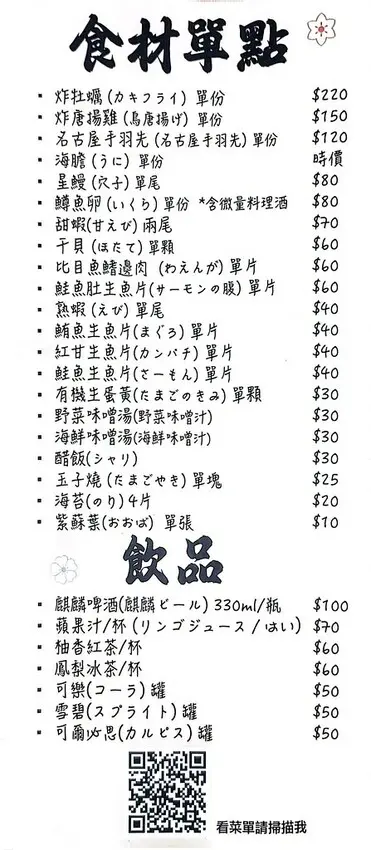 食材單點
▪ 炸牡蠣 (カキフライ) 單份 $220
▪ 炸唐揚雞 (鳥唐揚げ) 單份 $150
▪ 名古屋手羽先 (名古屋手羽先) 單份 $120
▪ 海膽 (うに) 單份 時價
▪ 星鰻 (穴子) 單尾 $80
▪ 鱒魚卵 (いくら) 單份 *含微量料理酒 $80
▪ 甜蝦(甘えび) 兩尾 $70
▪ 干貝 (ほたて) 單顆 $60
▪ 比目魚鰭邊肉 (わえんが) 單片 $60
▪ 鮭魚肚生魚片(サーモンの腹) 單片 $60
▪ 熟蝦 (えび) 單尾 $40
▪ 鮪魚生魚片(まぐろ) 單片 $40
▪ 紅甘生魚片(カンパチ) 單片 $40
▪ 鮭魚生魚片(さーもん) 單片 $40
▪ 有機生蛋黃(たまごのきみ) 單顆 $30
▪ 野菜味噌湯(野菜味噌汁) $30
▪ 海鮮味噌湯(海鮮味噌汁) $30
▪ 醋飯(シャリ) $30
▪ 玉子燒 (たまごやき) 單塊 $25
▪ 海苔(のり) 4片 $20
▪ 紫蘇葉(おおば) 單張 $10
飲品
▪ 麒麟啤酒(麒麟ビール) 330ml/瓶 $100
▪ 蘋果汁/杯 (リンゴジュース / はい) $70
▪ 柚香紅茶/杯 $60
▪ 鳳梨冰茶/杯 $60
▪ 可樂(コーラ) 罐 $50
▪ 雪碧(スプライト) 罐 $50
▪ 可爾必思(カルピス) 罐 $50
看菜單請掃描我